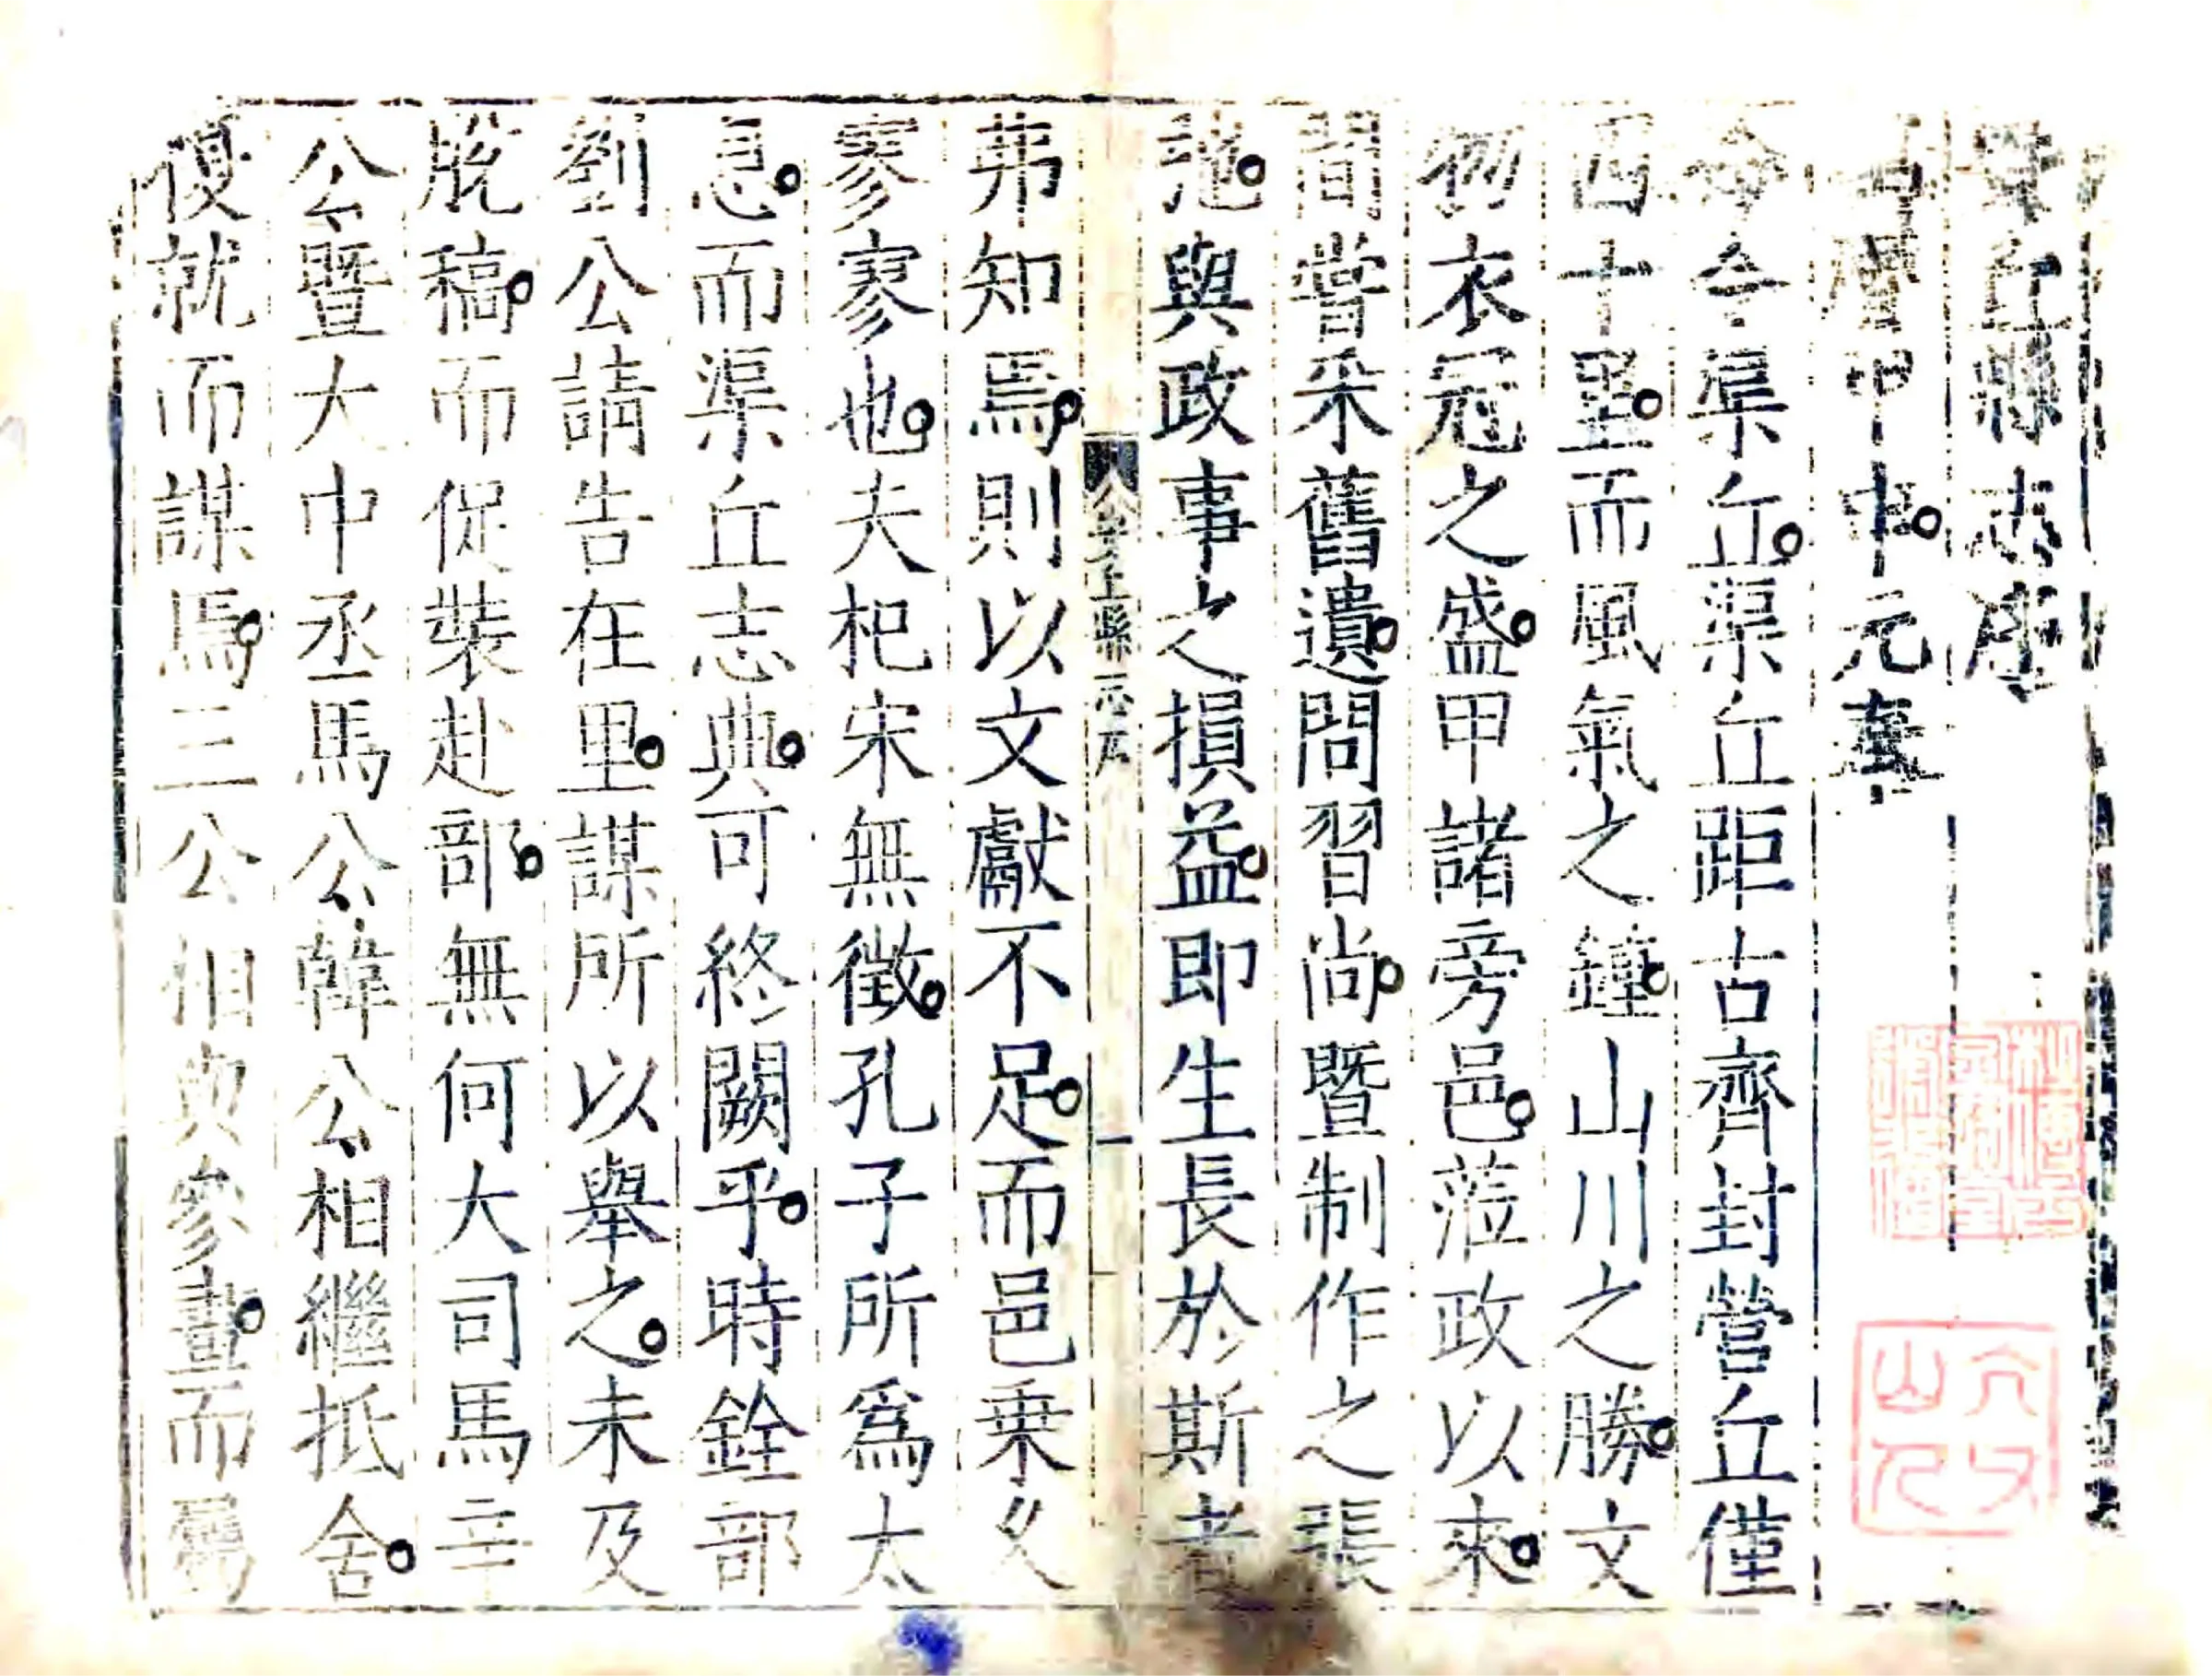 安丘縣志序
萬曆甲申中元
今渠丘渠丘距古齊封營丘僅
四十里而風氣之鐘山川之勝文
物衣冠之盛甲諸旁邑蒞政以來
間嘗采舊遺問習尚暨制作之張
弛與政事之損益即生長於斯者
安丘縣志序
一
茀知焉則以文獻不足而邑乗乆
寥寥也夫杞宋無徵孔子所爲太
息而渠丘志典可終闕乎時銓部
劉公請告在里謀所以舉之未及
脫稿而促裝赴部無何大司馬辛
公暨大中丞馬公韓公相繼抵舍
復就而謀焉三公相與參畫而屬